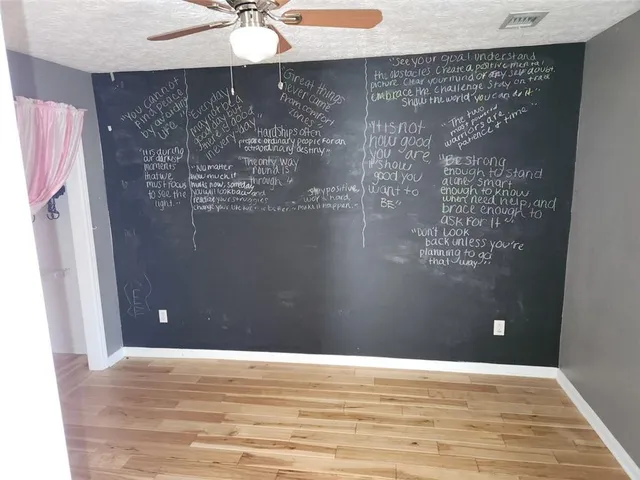 "You cannot
find peace
by avoiding
life
"It is during
our darkest
moments
that we
must focus
to see the
light."
"Everyday
may not be
good
there is good
in every
day"
"Great things
never came
from comfort
zones"
"Hardships often
prepare ordinary people for an
extraordinary destiny."
"No matter
how much it
hurts now, someday
you will look back and
realize your struggles
change your life for
"The only way
round is
through"
stay positive
work hard
make it happen."
"See your goal. understand
the obstacles. Create a positive mental
picture. Clear your mind of any self doubt.
Embrace the challenge. Stay on track
Show the world you can do it."
"It is not
how good
you are
it's how
good you
want to
BE"
"The two
most powerful
warriors are
patience & time"
"Be strong
enough to stand
alone, smart
enough to know
when need help, and
brace enough to
ask for it"
"Don't Look
back unless you're
planning to go
that way"